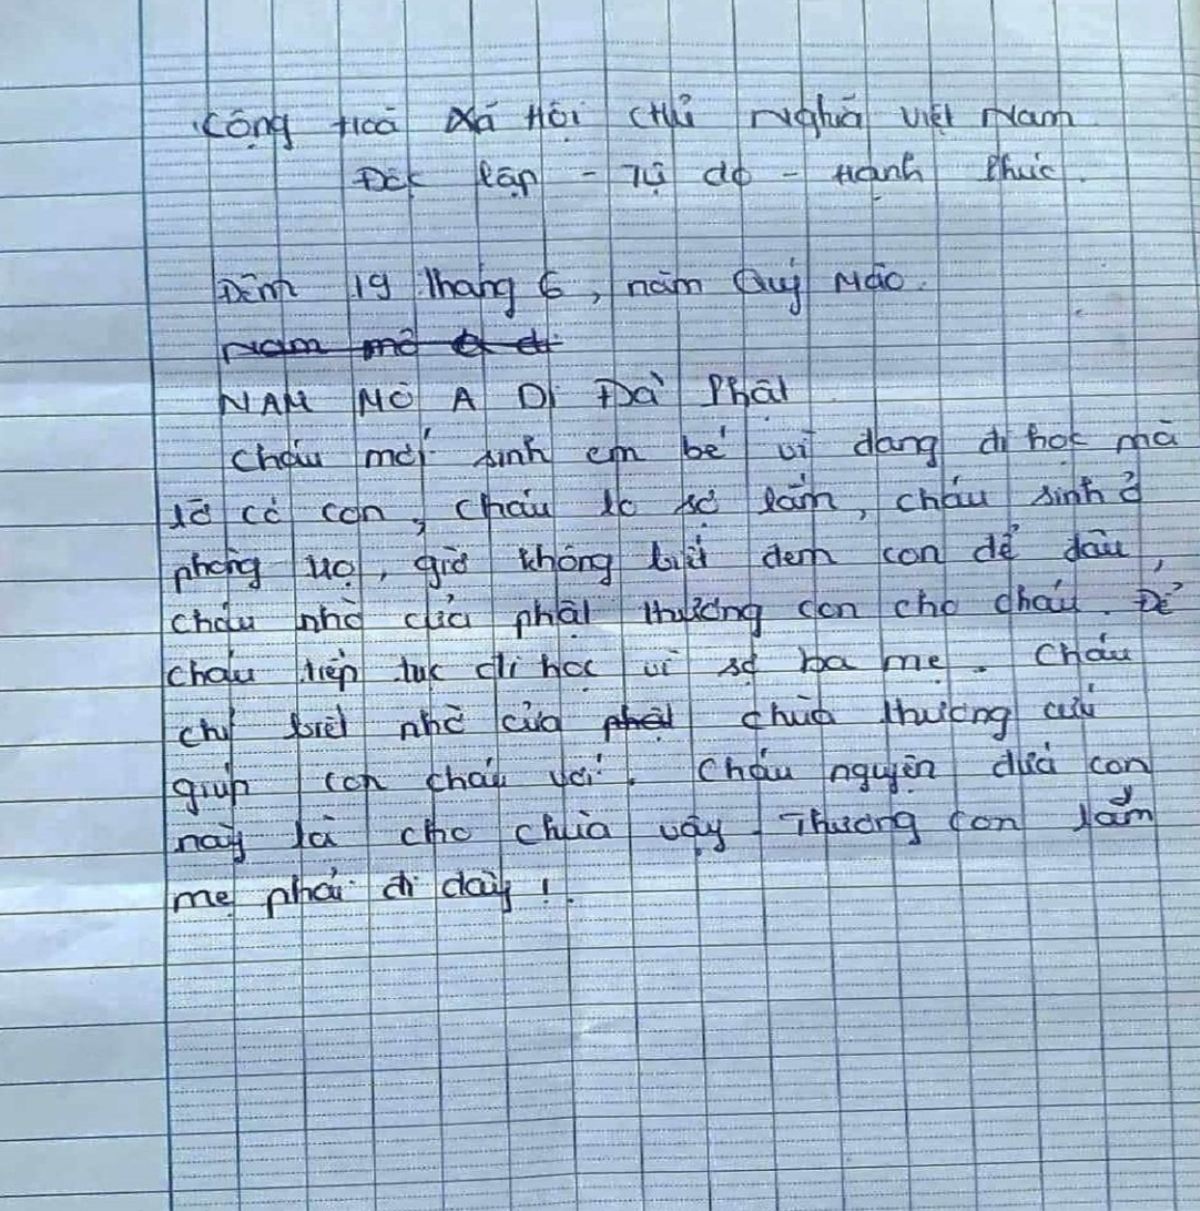 Cộng Hoà Xã Hội Chủ Nghĩa Việt Nam
Độc lập - Tự do - Hạnh Phúc.
Đêm 19 tháng 6, năm Quý Mão.
Nam mô a di
NAM MÔ A Di Đà Phật
Cháu mới sinh em bé vì đang đi học mà
lỡ có con, cháu lo sợ lắm, cháu sinh ở
phòng trọ, giờ không biết đem con để đâu,
cháu nhờ cửa phật thương con cho cháu. Để
cháu tiếp tục đi học vì sợ ba mẹ. Cháu
chỉ biết nhờ cửa phật chùa thương cứu
giúp con cháu với. Cháu nguyện đứa con
này là cho chùa vậy Thương con lắm
mẹ phải đi đây!